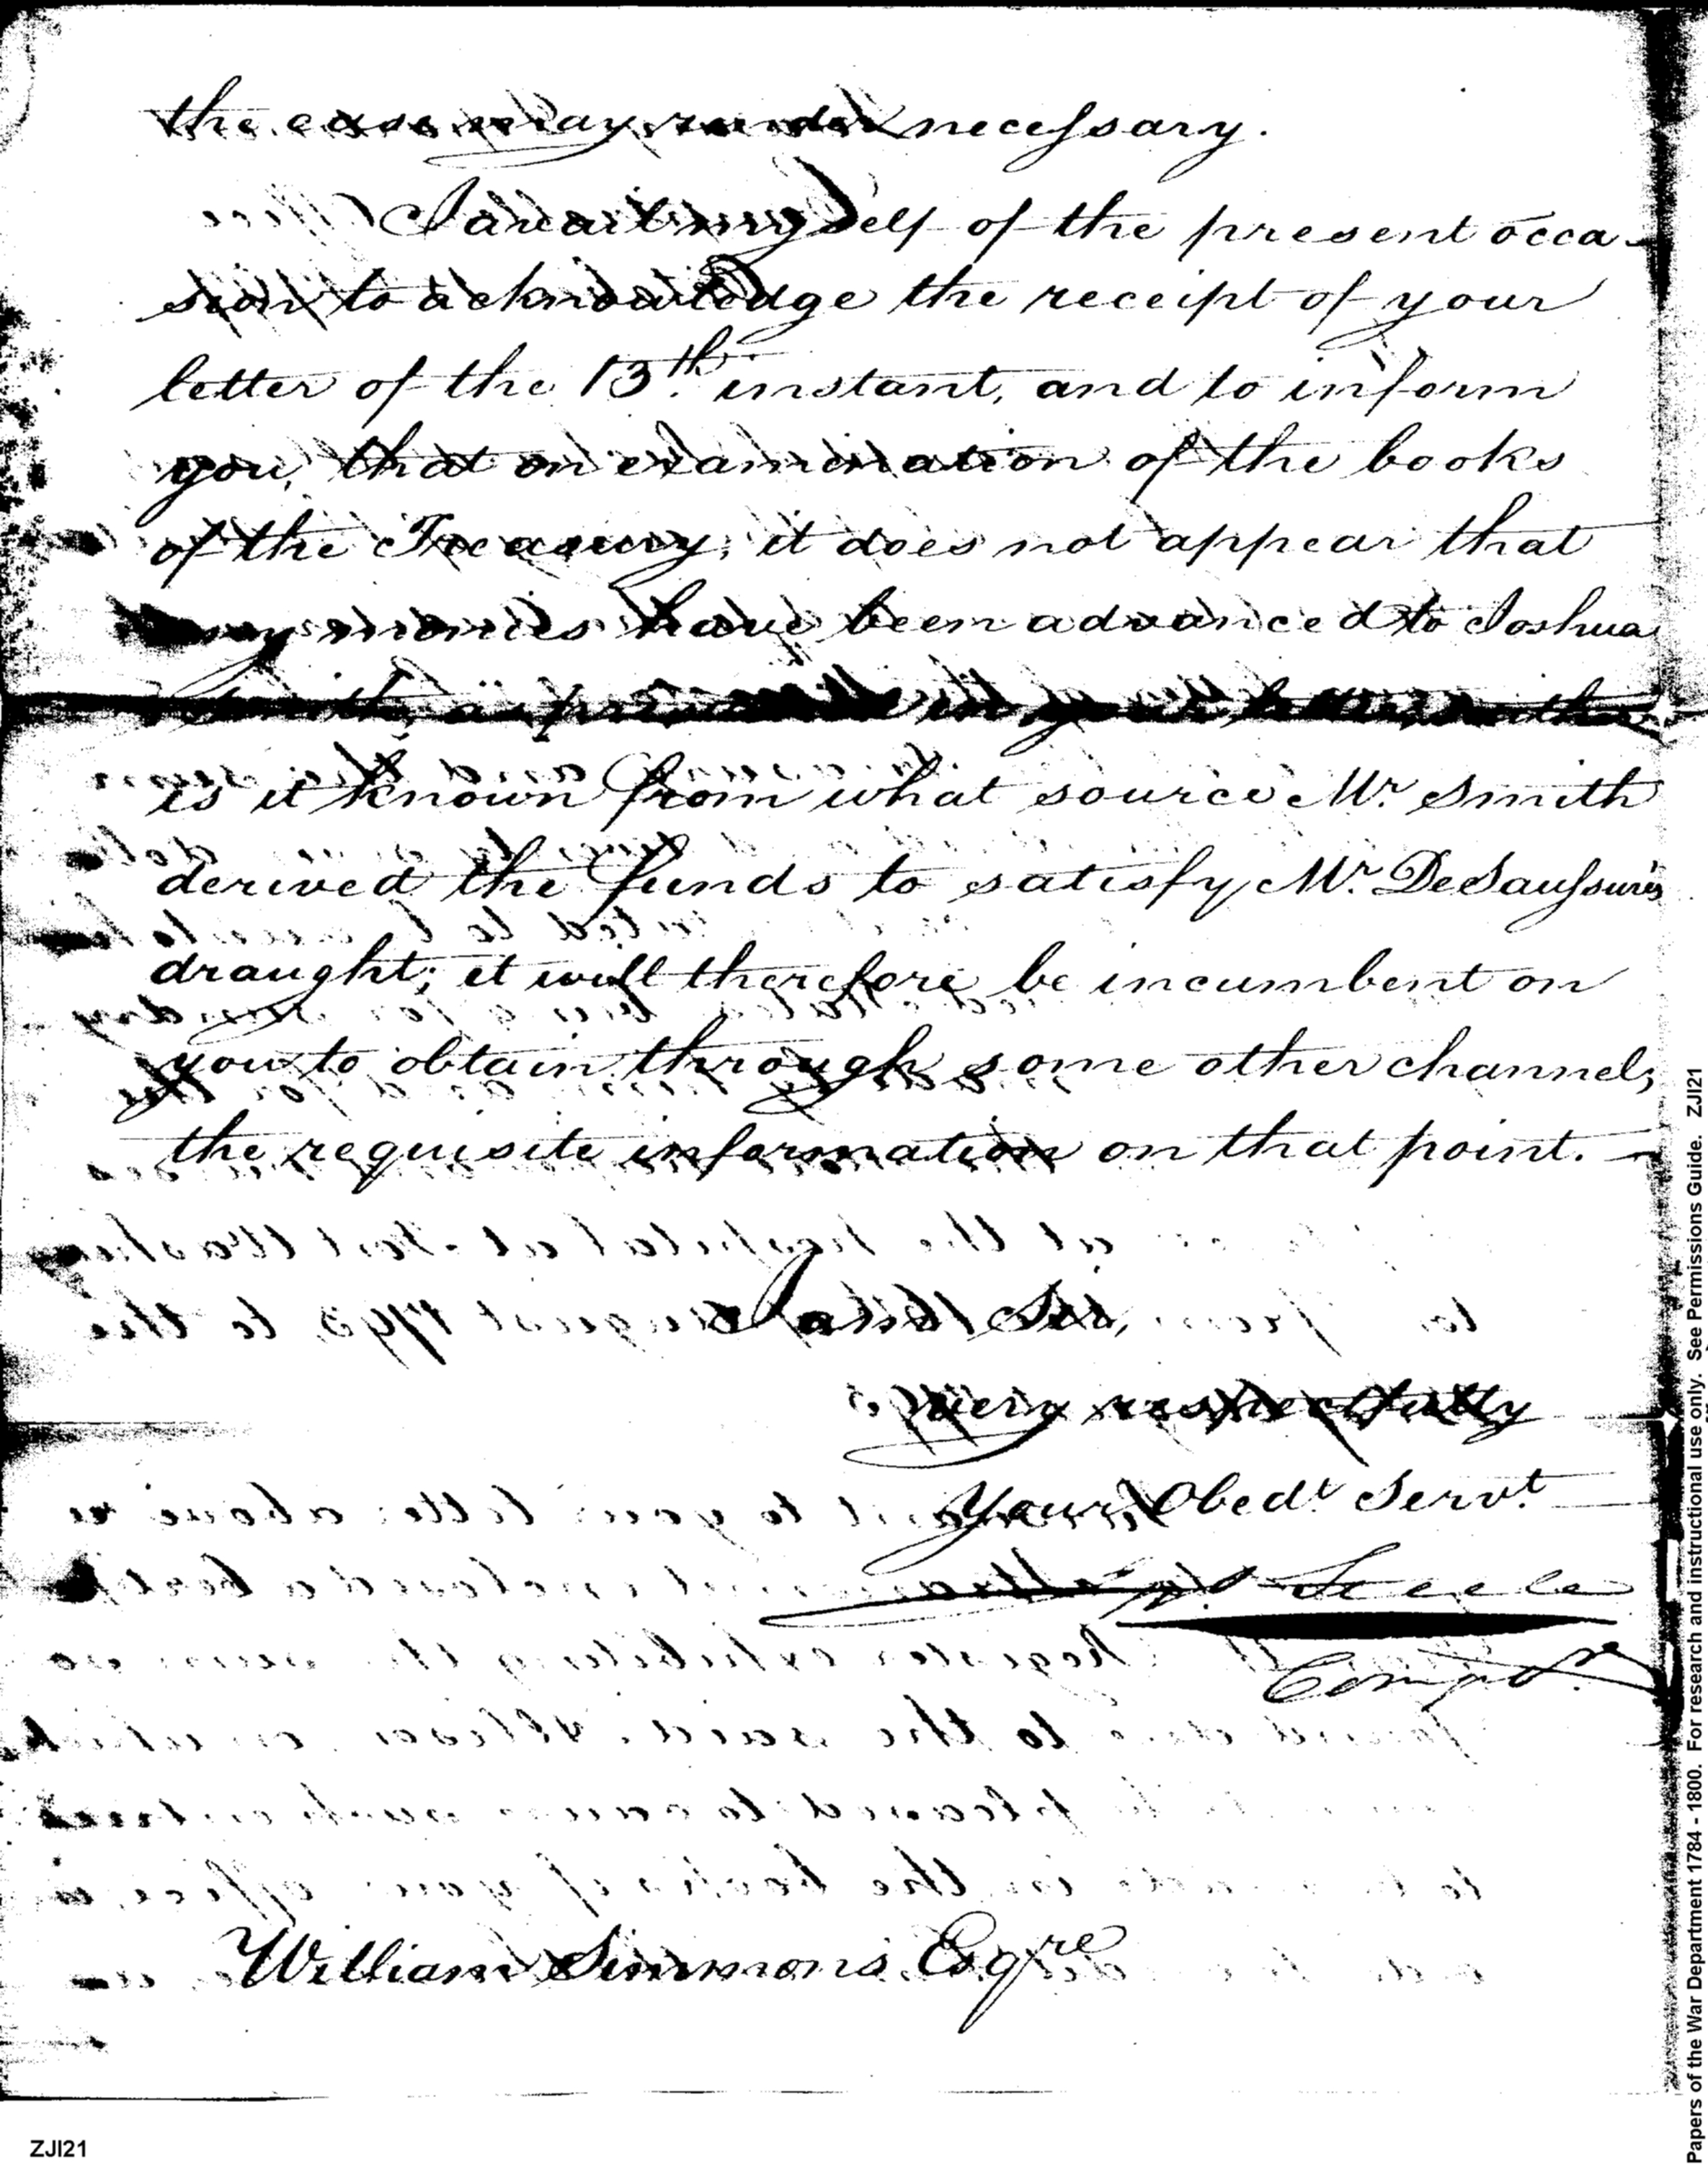 the case may render necessary.
I avail myself of the present occa-
sion to acknowledge the receipt of your
letter of the 13th. instant, and to inform
you, that on examination of the books
of the Treasury, it does not appear that
any monies have been advanced to Joshua
Smith, as in your letter, neither
is it known from what source Mr. Smith
derived the funds to satisfy Mr. DeSaussure's
draught; it will therefore be incumbent on
you to obtain through some other channel,
the requisite information on that point. —
I am, Sir,
Very respectfully
Your Obedt Servt.
Jn. Steele
Compr.
William Simmons Esqre
ZJI21
Papers of the War Department 1784 - 1800. For research and instructional use only. See Permissions Guide. ZJI21